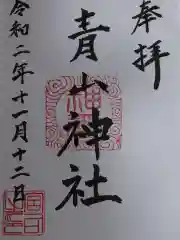 奉拝
青山神社
令和二年十一月十二日